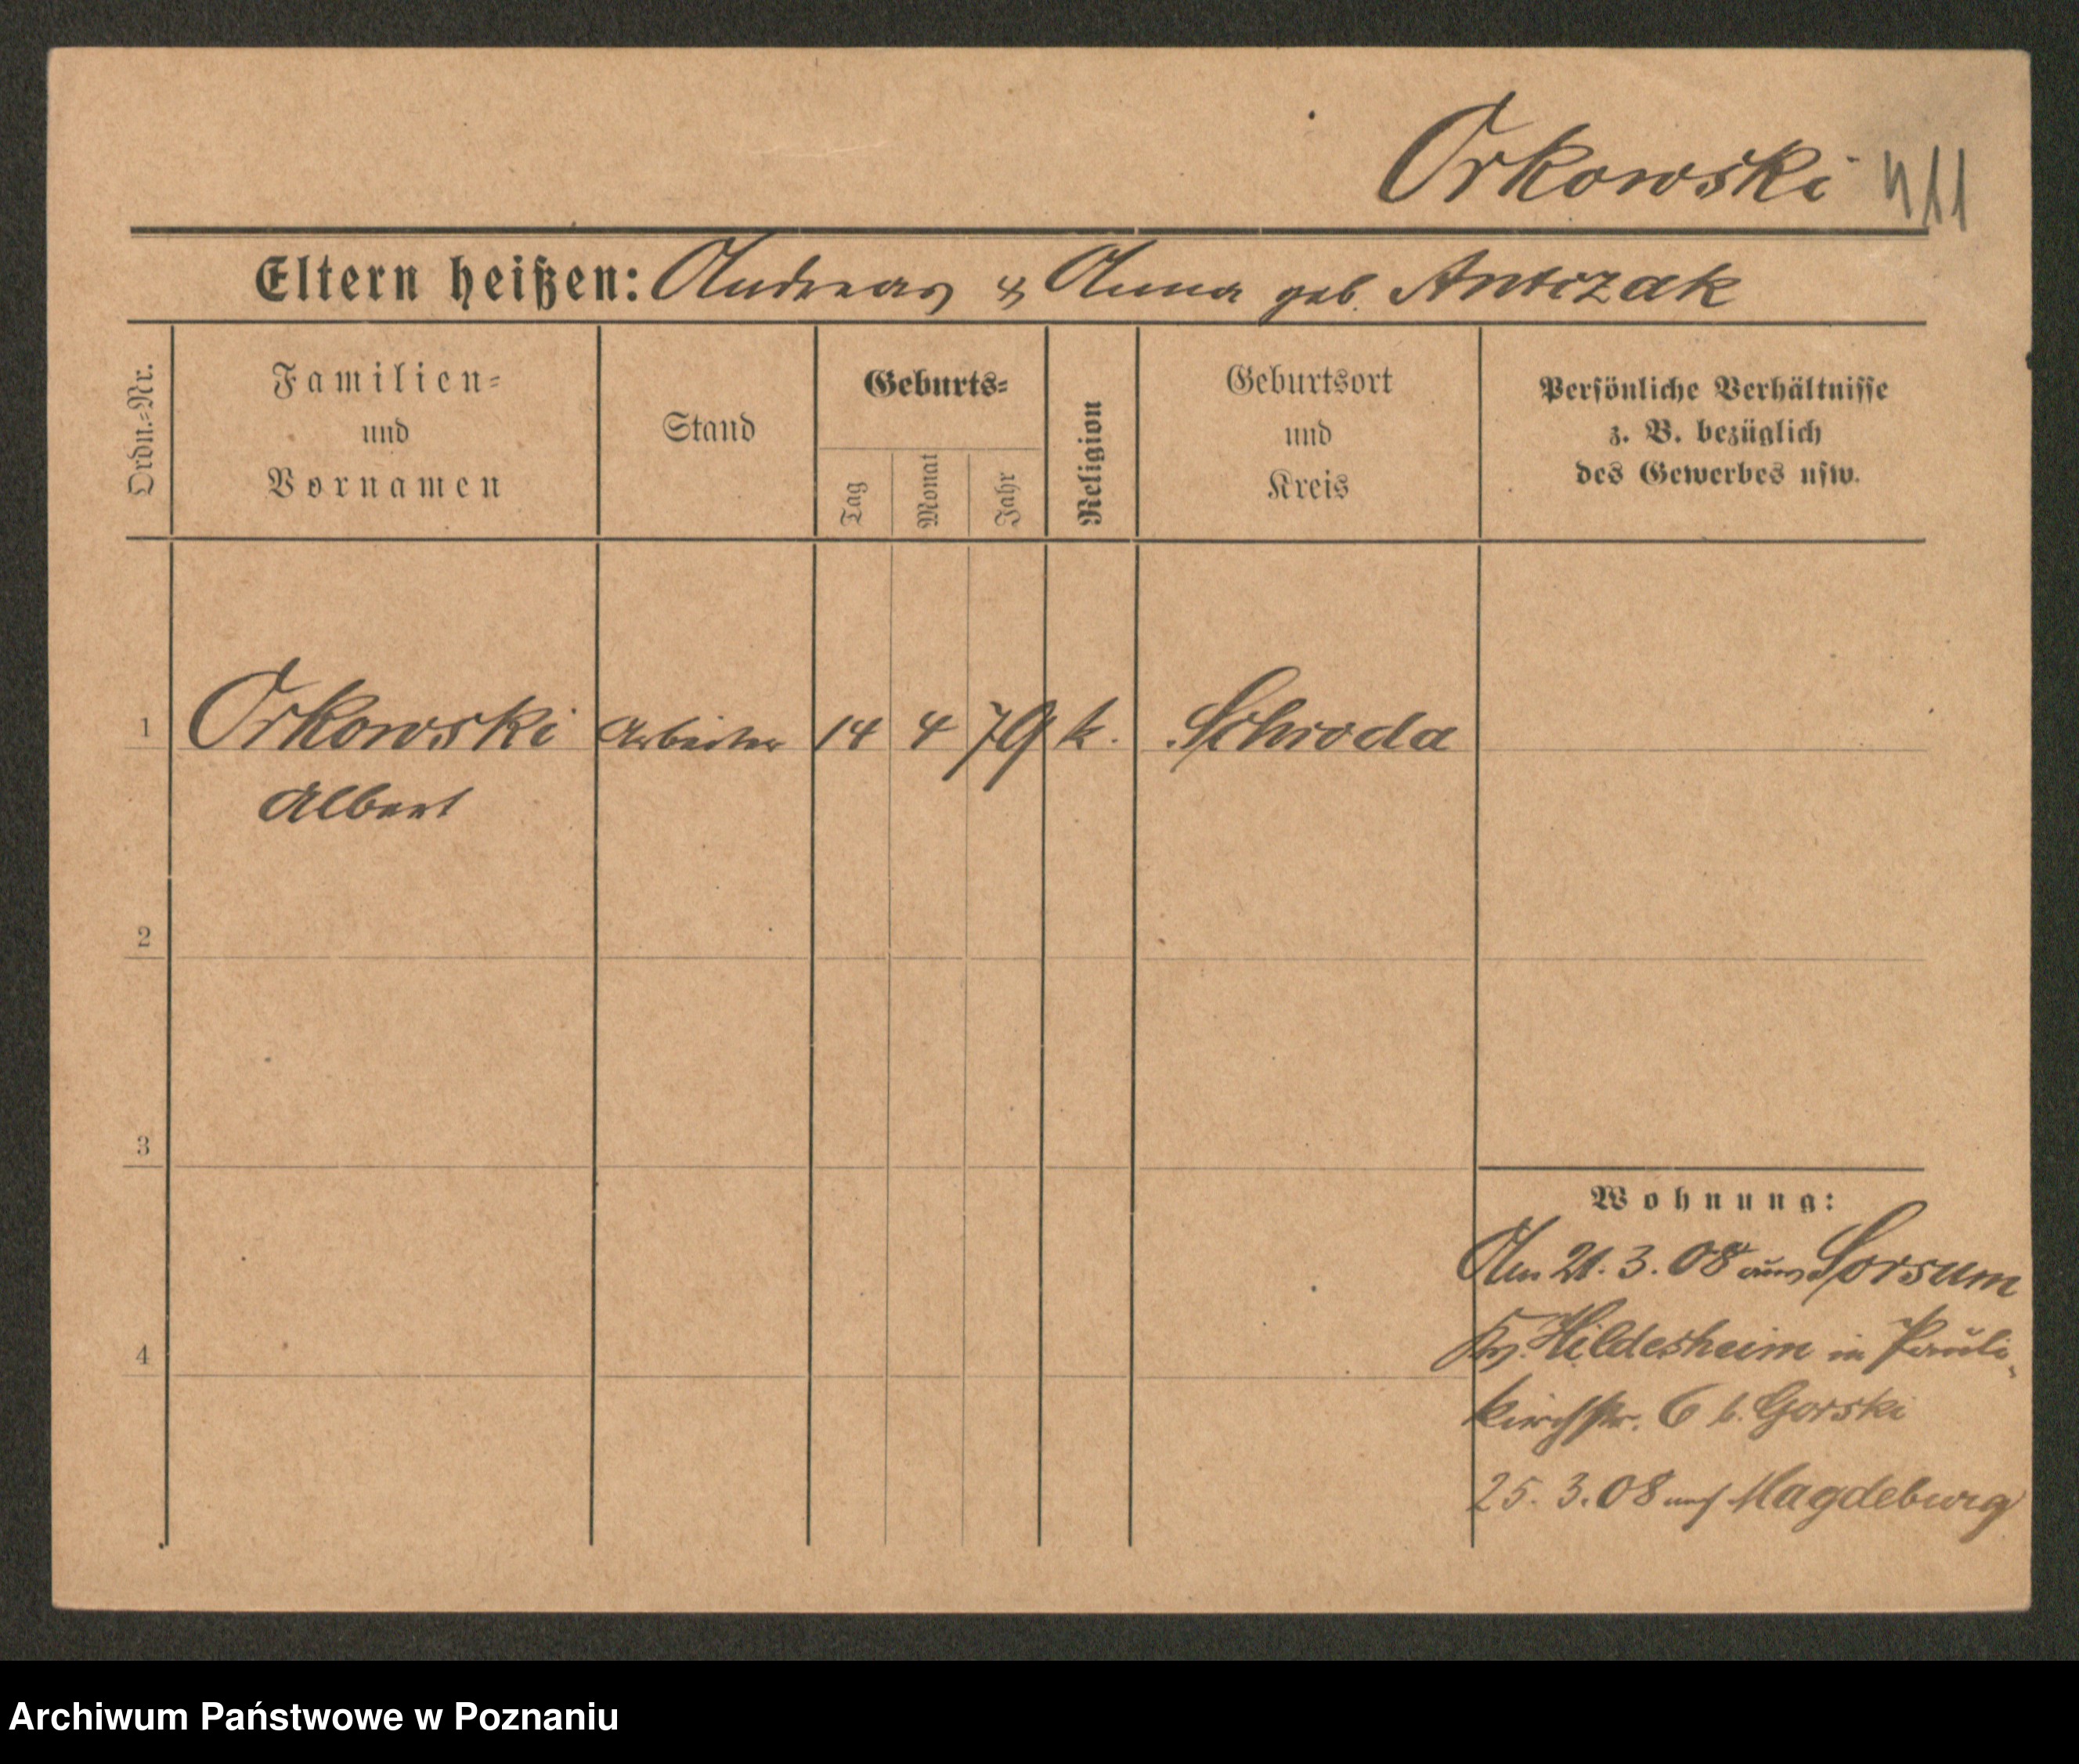 Orkowski 411
Eltern heißen: Andreas & Anna geb. Antczak
Ordn.=Nr.
Familien=
und
Vornamen
Stand
Geburts=
Tag
Monat
Jahr
Religion
Geburtsort
und
Kreis
Persönliche Verhältnisse
z. B. bezüglich
des Gewerbes usw.
1 Orkowski Arbeiter 14 4 79 k. Schroda
Albert
2
3
4
Wohnung:
Am 21.3.08 aus Sorsum
Krs. Hildesheim in Pauli-
kirchstr. 6 b. Gorski
25.3.08 auf Magdeburg
Archiwum Państwowe w Poznaniu